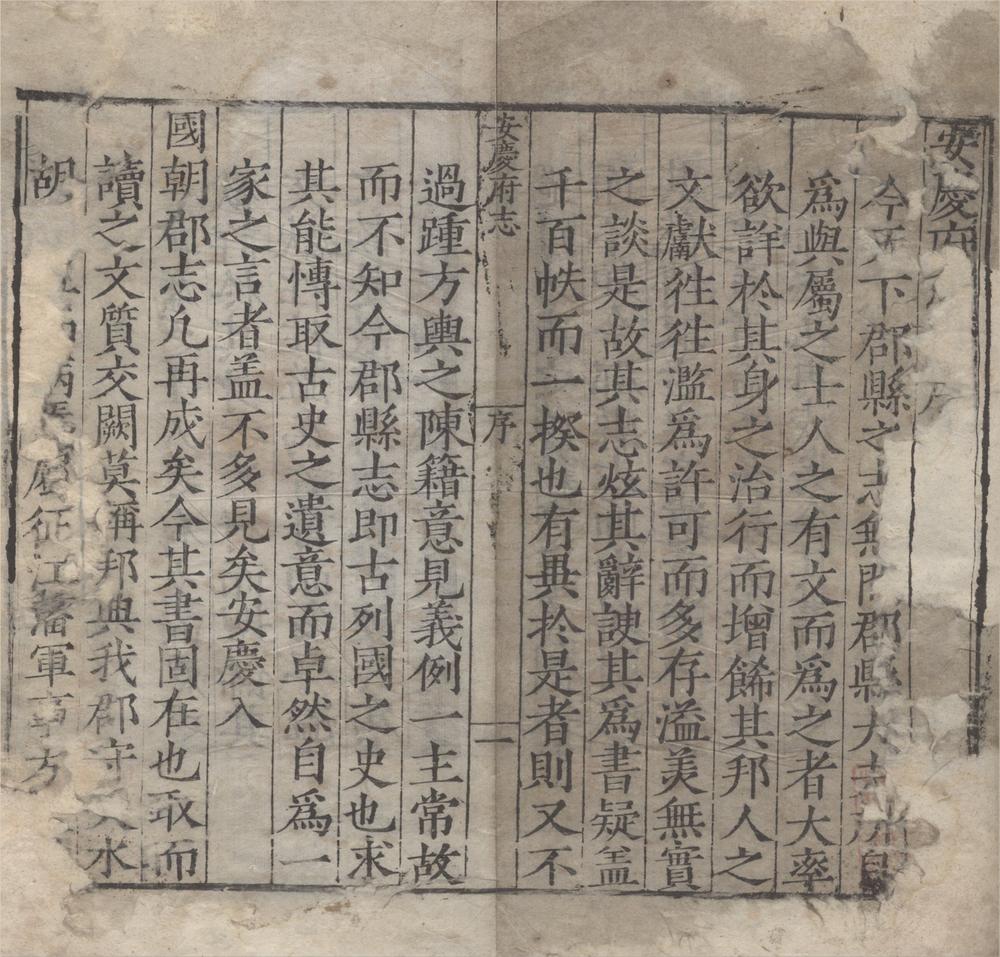 安慶府
今天下郡縣之志無門郡縣大夫自
爲與屬之士人之有文而爲之者大率
欲詳於其身之治行而增餙其邦人之
文獻徃徃濫爲許可而多存溢羙無實
之談是故其志炫其辭諛其爲書疑盖
千百帙而一揆也有異於是者則又不
安慶府志 序 一
過踵方輿之陳籍意見義例一主常故
而不知今郡縣志即古列國之史也求
其能慱取古史之遺意而卓然自爲一
家之言者盖不多見矣安慶入
國朝郡志凢再成矣今其書固在也取而
讀之文質交闕莫稱邦典我郡守水
胡 征江藩軍事方